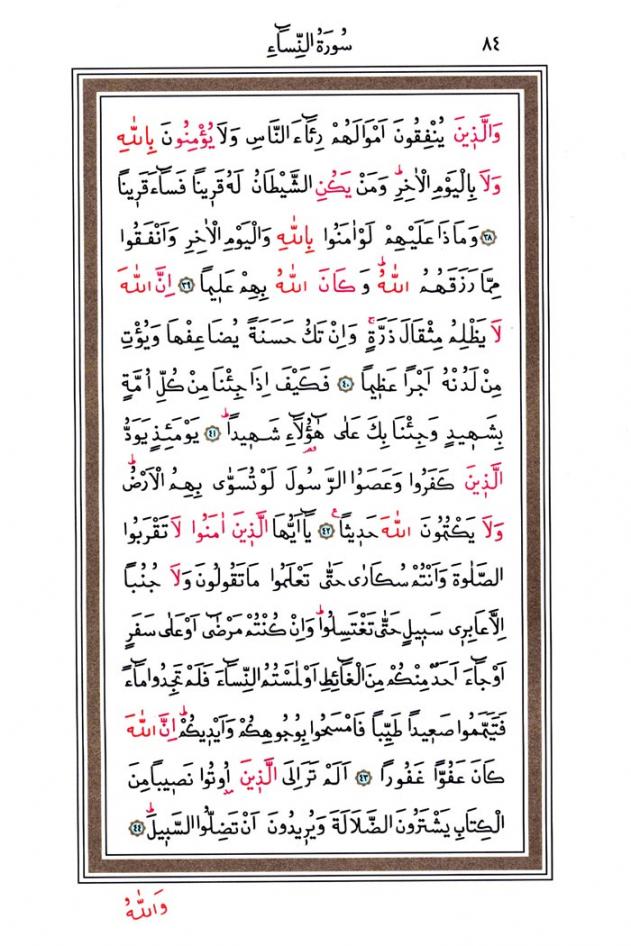 ٨٤ سُورَةُ النِّسَاءِ
وَالَّذِينَ يُنْفِقُونَ اَمْوَالَهُمْ رِئَاۤءَ النَّاسِ وَلَا يُؤْمِنُونَ بِاللّٰهِ
وَلَا بِالْيَوْمِ الْاٰخِرِۜ وَمَنْ يَكُنِ الشَّيْطَانُ لَهُ قَرٖيناً فَسَاۤءَ قَرٖيناً
﴿٣٨﴾ وَمَاذَا عَلَيْهِمْ لَوْ اٰمَنُوا بِاللّٰهِ وَالْيَوْمِ الْاٰخِرِ وَاَنْفَقُوا
مِمَّا رَزَقَهُمُ اللّٰهُۜ وَكَانَ اللّٰهُ بِهِمْ عَلٖيماً ﴿٣٩﴾ اِنَّ اللّٰهَ
لَا يَظْلِمُ مِثْقَالَ ذَرَّةٍۚ وَاِنْ تَكُ حَسَنَةً يُضَاعِفْهَا وَيُؤْتِ
مِنْ لَدُنْهُ اَجْراً عَظٖيماً ﴿٤٠﴾ فَكَيْفَ اِذَا جِئْنَا مِنْ كُلِّ اُمَّةٍ
بِشَهٖيدٍ وَجِئْنَا بِكَ عَلٰى هٰۤؤُ۬لَاۤءِ شَهٖيداًۜ ﴿٤١﴾ يَوْمَئِذٍ يَوَدُّ
الَّذٖينَ كَفَرُوا وَعَصَوُا الرَّسُولَ لَوْ تُسَوّٰى بِهِمُ الْاَرْضُۜ
وَلَا يَكْتُمُونَ اللّٰهَ حَدٖيثاً۟ ﴿٤٢﴾ يَاۤ اَيُّهَا الَّذٖينَ اٰمَنُوا لَا تَقْرَبُوا
الصَّلٰوةَ وَاَنْتُمْ سُكَارٰى حَتّٰى تَعْلَمُوا مَا تَقُولُونَ وَلَا جُنُباً
اِلَّا عَابِرٖي سَبٖيلٍ حَتّٰى تَغْتَسِلُواۜ وَاِنْ كُنْتُمْ مَرْضٰۤى اَوْ عَلٰى سَفَرٍ
اَوْ جَاۤءَ اَحَدٌ مِنْكُمْ مِنَ الْغَاۤئِطِ اَوْ لٰمَسْتُمُ النِّسَاۤءَ فَلَمْ تَجِدُوا مَاۤءً
فَتَيَمَّمُوا صَعٖيداً طَيِّباً فَامْسَحُوا بِوُجُوهِكُمْ وَاَيْدٖيكُمْۜ اِنَّ اللّٰهَ
كَانَ عَفُوًّا غَفُوراً ﴿٤٣﴾ اَلَمْ تَرَ اِلَى الَّذٖينَ اُو۫تُوا نَصٖيباً مِنَ
الْكِتَابِ يَشْتَرُونَ الضَّلَالَةَ وَيُرٖيدُونَ اَنْ تَضِلُّوا السَّبٖيلَۜ ﴿٤٤﴾
وَاللّٰهُ